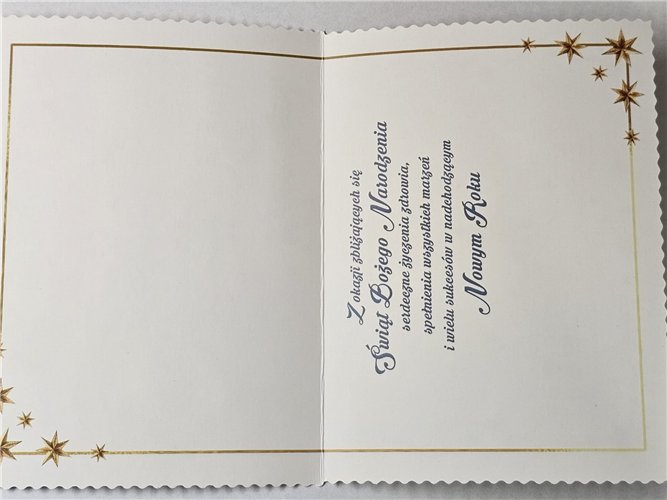 Z okazji zbliżających się
Świąt Bożego Narodzenia
serdeczne życzenia zdrowia,
spełnienia wszystkich marzeń
i wielu sukcesów w nadchodzącym
Nowym Roku